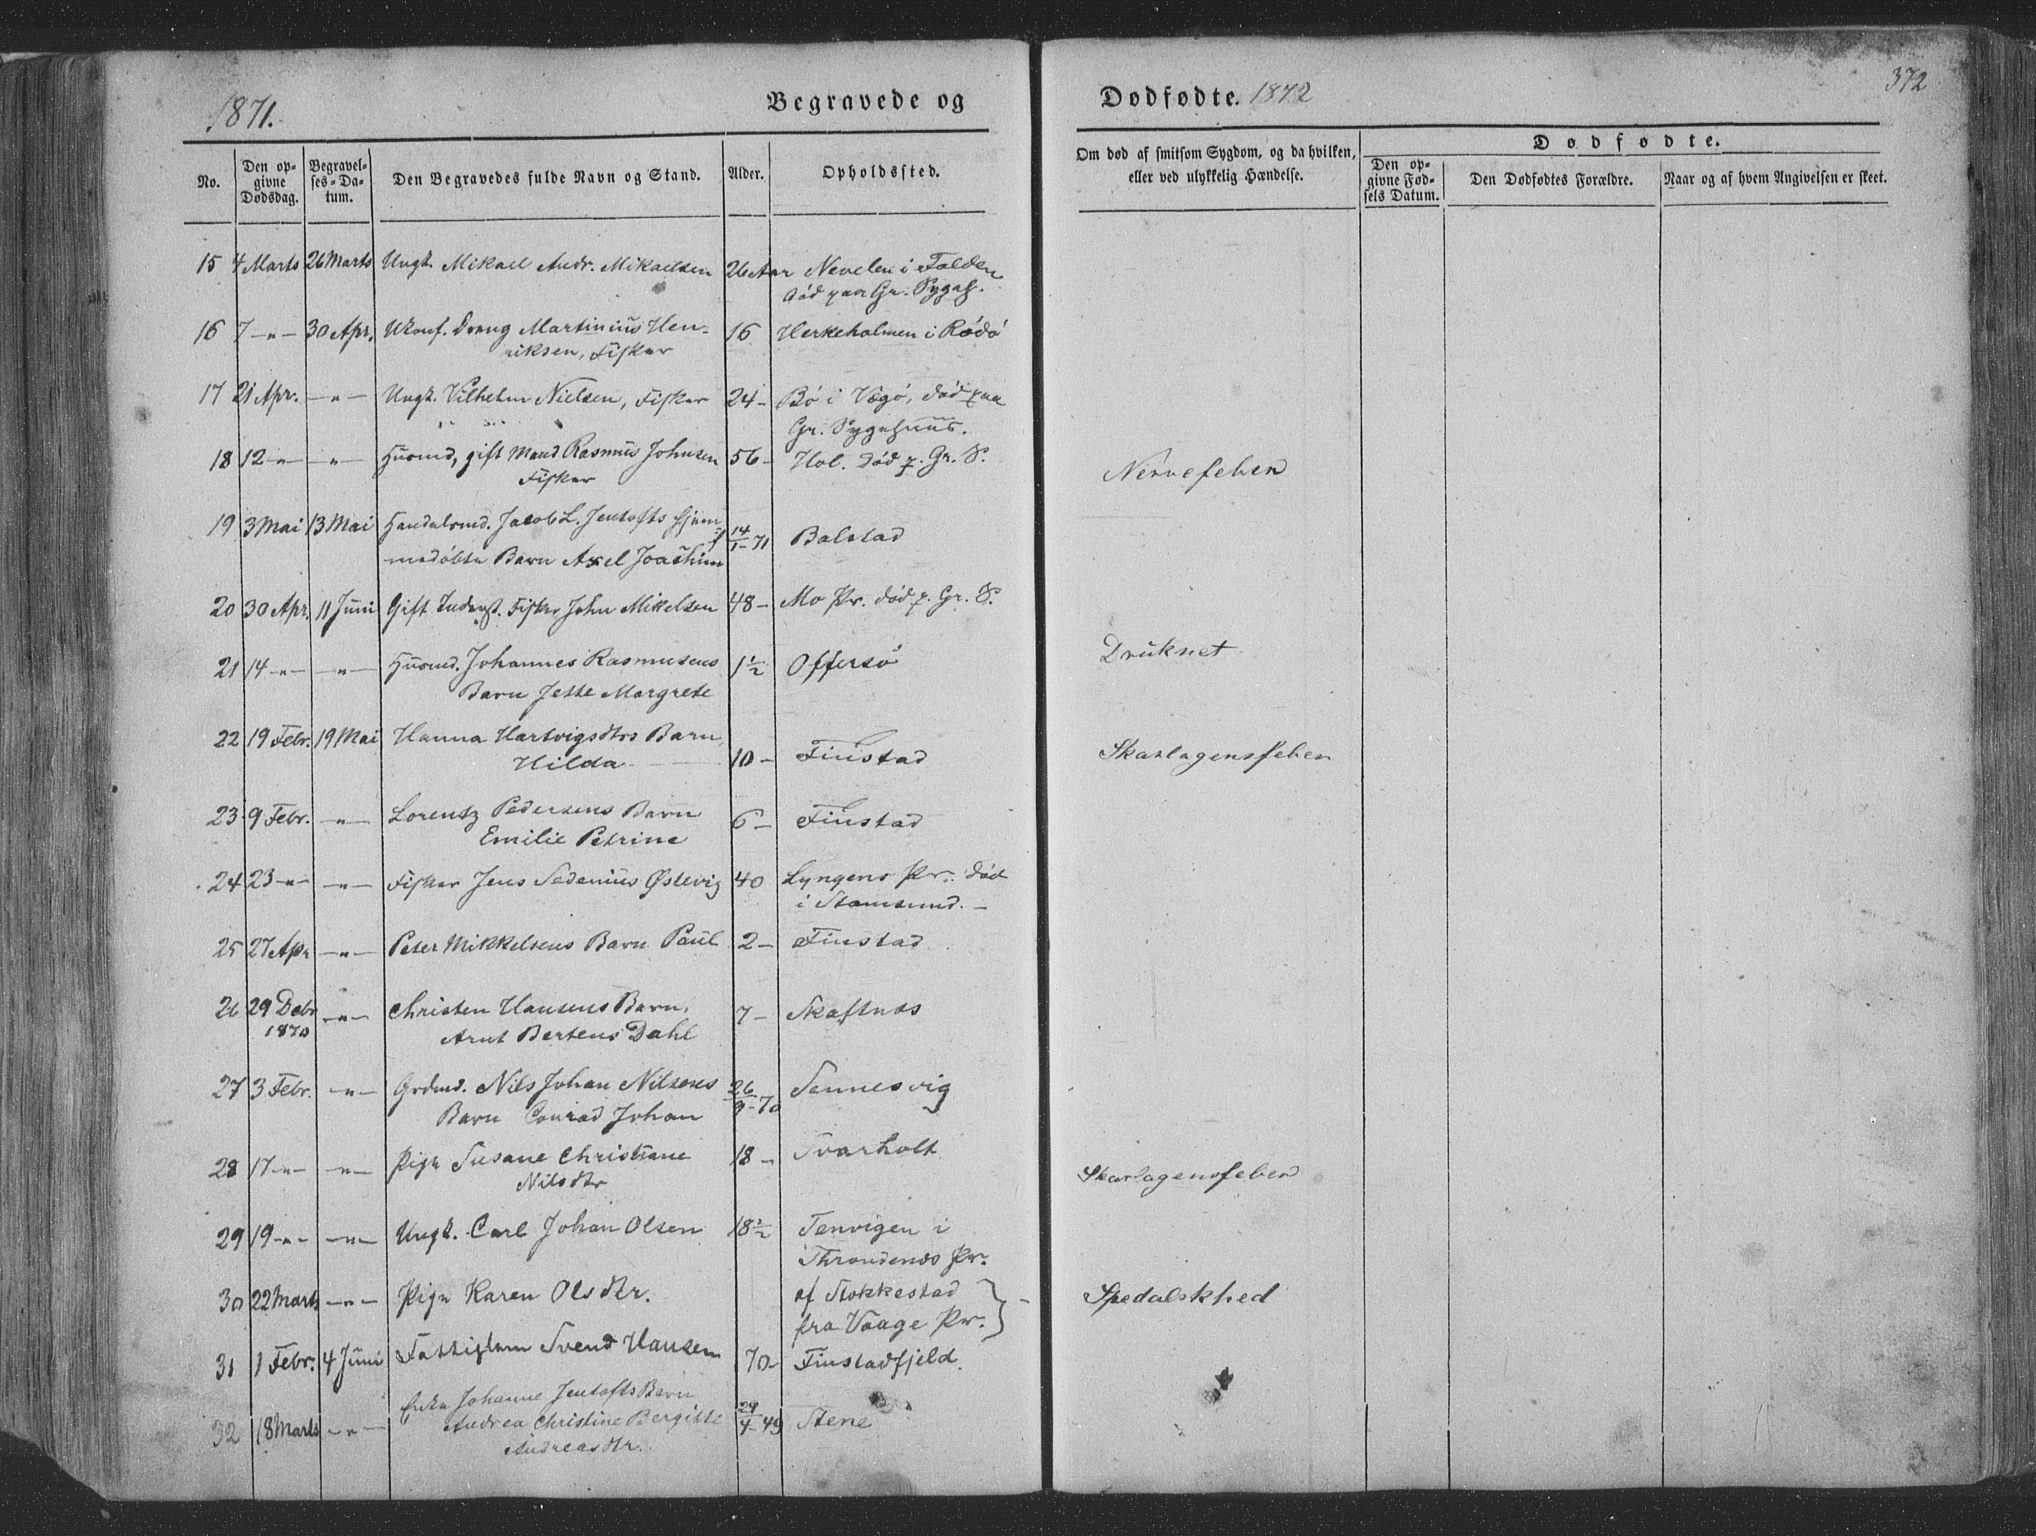 1871.
Begravede og
Dødfødte. 1872
372
No.
Den opgivne Dødsdag.
Begravelses-Datum.
Den Begravedes fulde Navn og Stand.
Alder.
Opholdssted.
Om død af smitsom Sygdom, og da hvilken, eller ved ulykkelig Hændelse.
Dødfødte.
Den opgivne Fødsels Datum.
Den Dødfødtes Forældre.
Naar og af hvem Angivelsen er skeet.
15 4 Marts 26 Marts Ungk. Mikael Andr. Mikaelsen 26 Aar Nevelen i Folden
død paa Gr. Sygeh.
16 7 -"- 30 Apr. Ukonf. Dreng Martinius Hen-
riksen, Fisker 16 Herkeholmen i Rødø
17 21 Apr. -"- Ungk. Vilhelm Nielsen, Fisker 24 - Bø i Vægø, død paa
Gr. Sygehuus.
18 12 -"- -"- Husmd, gift Mand Rasmus Johnsen 56 - Hol. død p. Gr. S. Nervefeber
Fisker
19 3 Mai 13 Mai Handelsmd. Jacob L. Jentofts hjem-
medøbte Barn Axel Joachim 14/1-71 Balstad
20 30 Apr. 11 Juni Gift Inderst. Fisker John Mikelsen 48 - Mo Pr. død p. Gr. S.
21 14 -"- -"- Husmd. Johannes Rasmusens 1 1/2 Offersø Druknet
Barn Jette Margrete
22 19 Febr. 19 Mai Hanna Hartvigsdtrs Barn
Hilda 10 - Finstad Skarlagensfeber
23 9 Febr. -"- Lorentz Pedersens Barn
Emilie Petrine 6 - Finstad
24 23 -"- -"- Fisker Jens Sedenius Østevig 40 Lyngens Pr. død
i Stamsund. -
25 27 Apr -"- Peter Mikkelsens Barn Paul 2 - Finstad
26 29 Debr 1870 -"- Christen Hansens Barn,
Arnt Bertens Dahl 7 - Skaftnes
27 3 Febr. -"- Grdmd. Nils Johan Nilsens
Barn Conrad Johan 26/9-70 Sennesvig
28 17 -"- -"- Pige Susane Christiane
Nilsdtr 18 - Svarholt Skarlagensfeber
29 19 -"- -"- Ungk. Carl Johan Olsen 18 1/2 Tenvigen i
Throndenes Pr.
30 22 Marts -"- Pige Karen Olsdtr. af Stokkestad
fra Vaage Pr. - Spedalskhed
31 1 Febr. 4 Juni Fattiglem Svend Hansen 70 - Finstadfjeld.
32 18 Marts -"- Enke Johanne Jentofts Barn
Andrea Christine Bergitte 29/4-49 Stene
Andreasdtr.